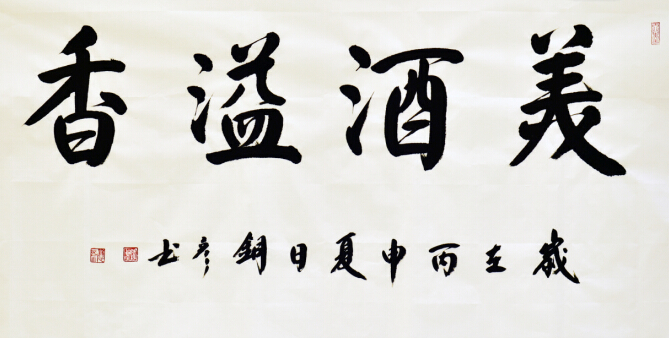 美酒溢香
歲在丙申夏日銅彦书